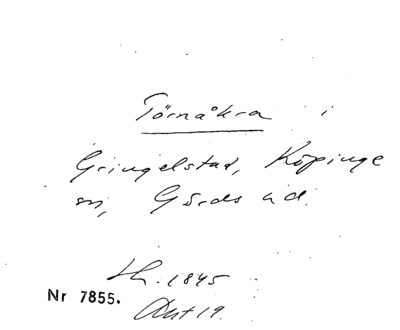 Törnåkra i
Gringelstad, Köpinge
sn, Gärds hd.
Lh. 1845
Nr 7855.
Akt 19.